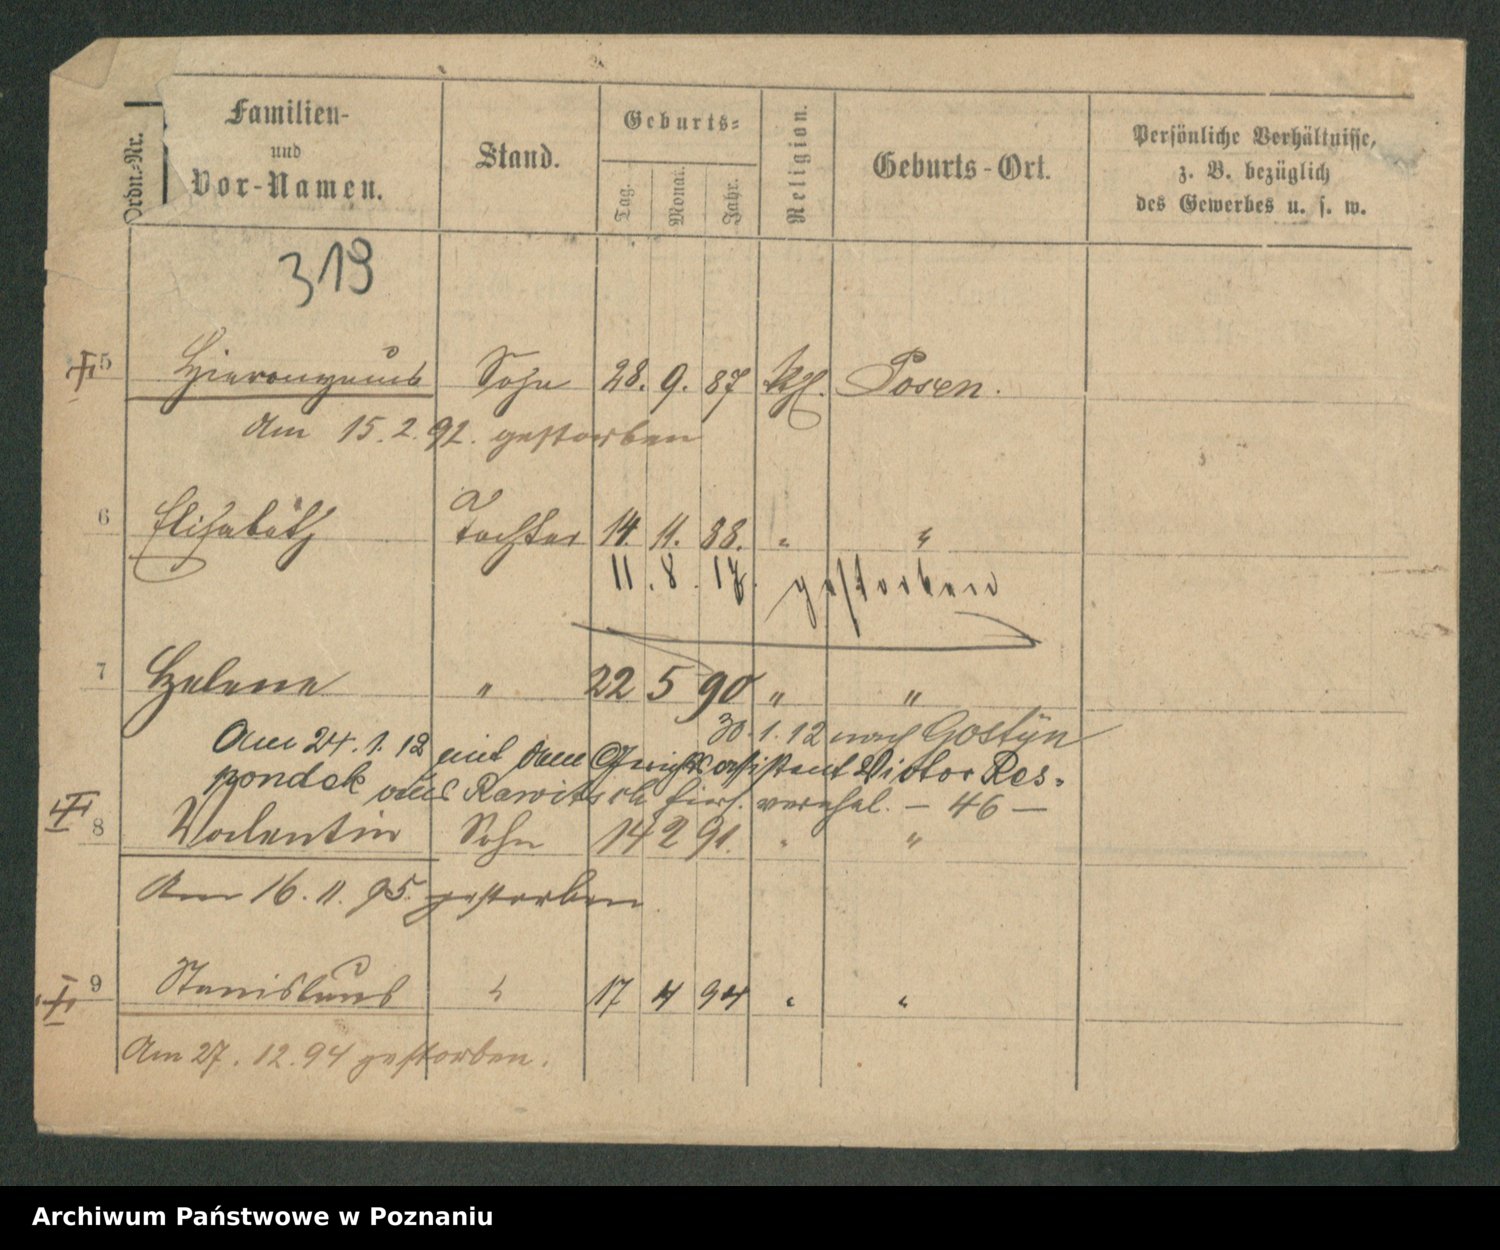 Ordn.-Nr.
Familien- und Vor-Namen.
Stand.
Geburts-
Tag. Monat. Jahr.
Religion.
Geburts-Ort.
Persönliche Verhältnisse, z. B. bezüglich des Gewerbes u. s. w.
319
5 Hieronymus Sohn 28. 9. 87 kth. Posen.
Am 15. 2. 92. gestorben
6 Elisabeth Tochter 14. 11. 88. " "
11. 8. 17. gestorben
7 Helene " 22 5 90 " "
30. 1. 12 nach Gostyn
Am 24. 1. 12 mit dem Gerichtsassistent Victor Res-
pondek aus Rawitsch hier verehel. — 46 —
8 Valentin Sohn 14 2 91. " "
Am 16. 11. 95. gestorben
9 Stanislaus " 17 4 94 " "
Am 27. 12. 94 gestorben.
Archiwum Państwowe w Poznaniu